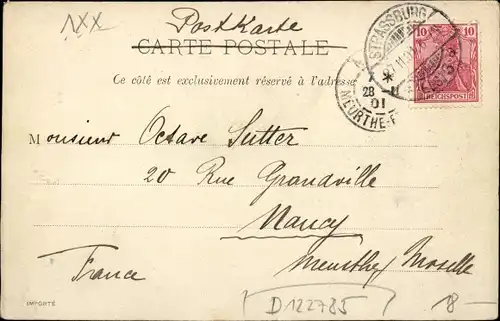 1XX
Postkarte
CARTE POSTALE
Ce côté est exclusivement réservé à l'adresse
STRASSBURG
10 10
REICHSPOST
28 11
01
MEURTHE-E
Monsieur Octave Sutter
20 Rue Grandville
Nancy
Meurthe / Moselle
France
IMPORTÉ
D122785
18-